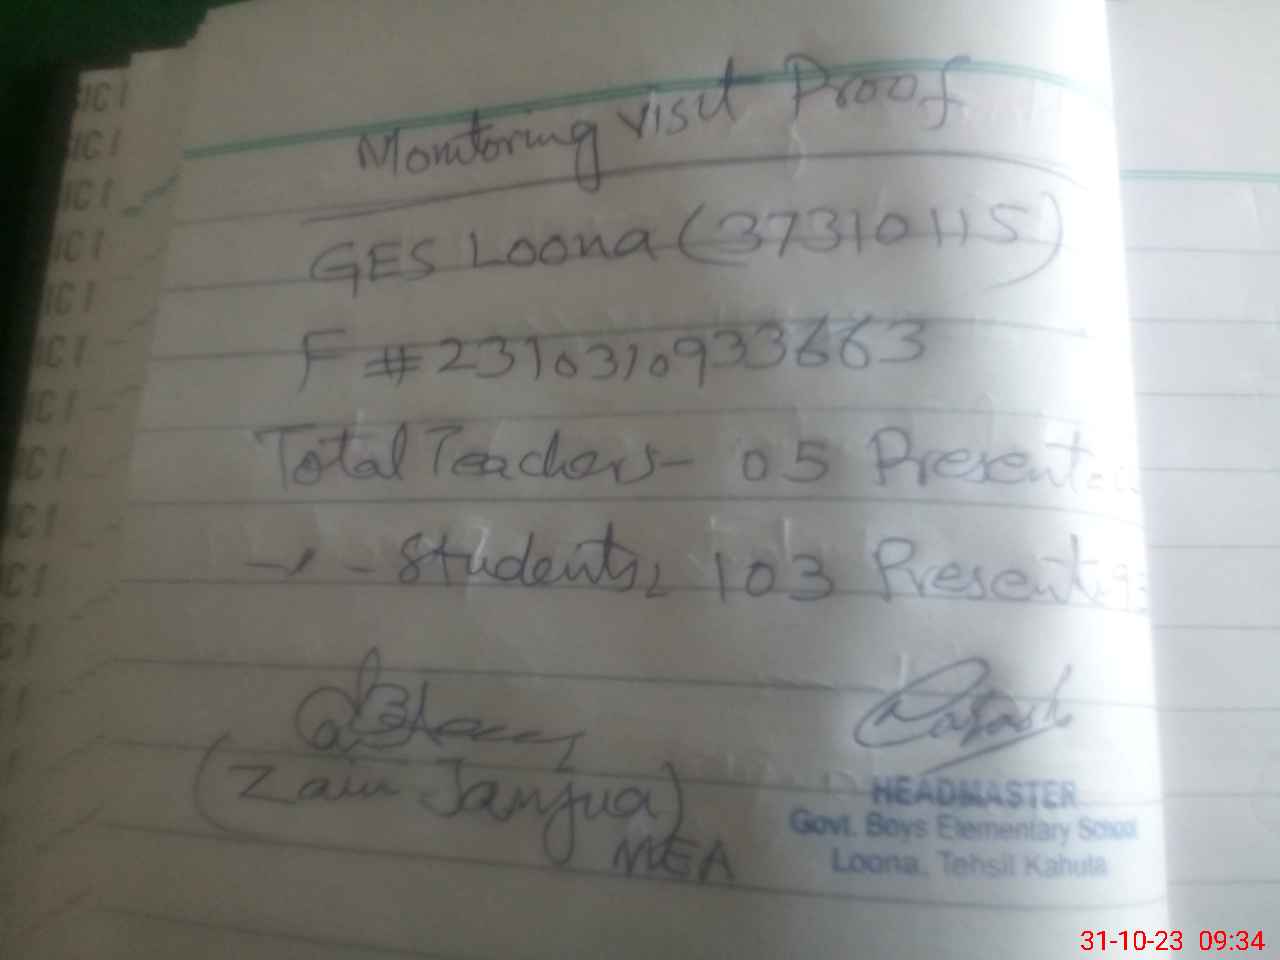 Monitoring visit Proof
GES Loona (37310115)
F # 2310310933663
Total Teachers - 05 Present
- Students, 103 Present
(Zain Janjua)
MEA
HEADMASTER
Govt. Boys Elementary School
Loona, Tehsil Kahuta
31-10-23 09:34